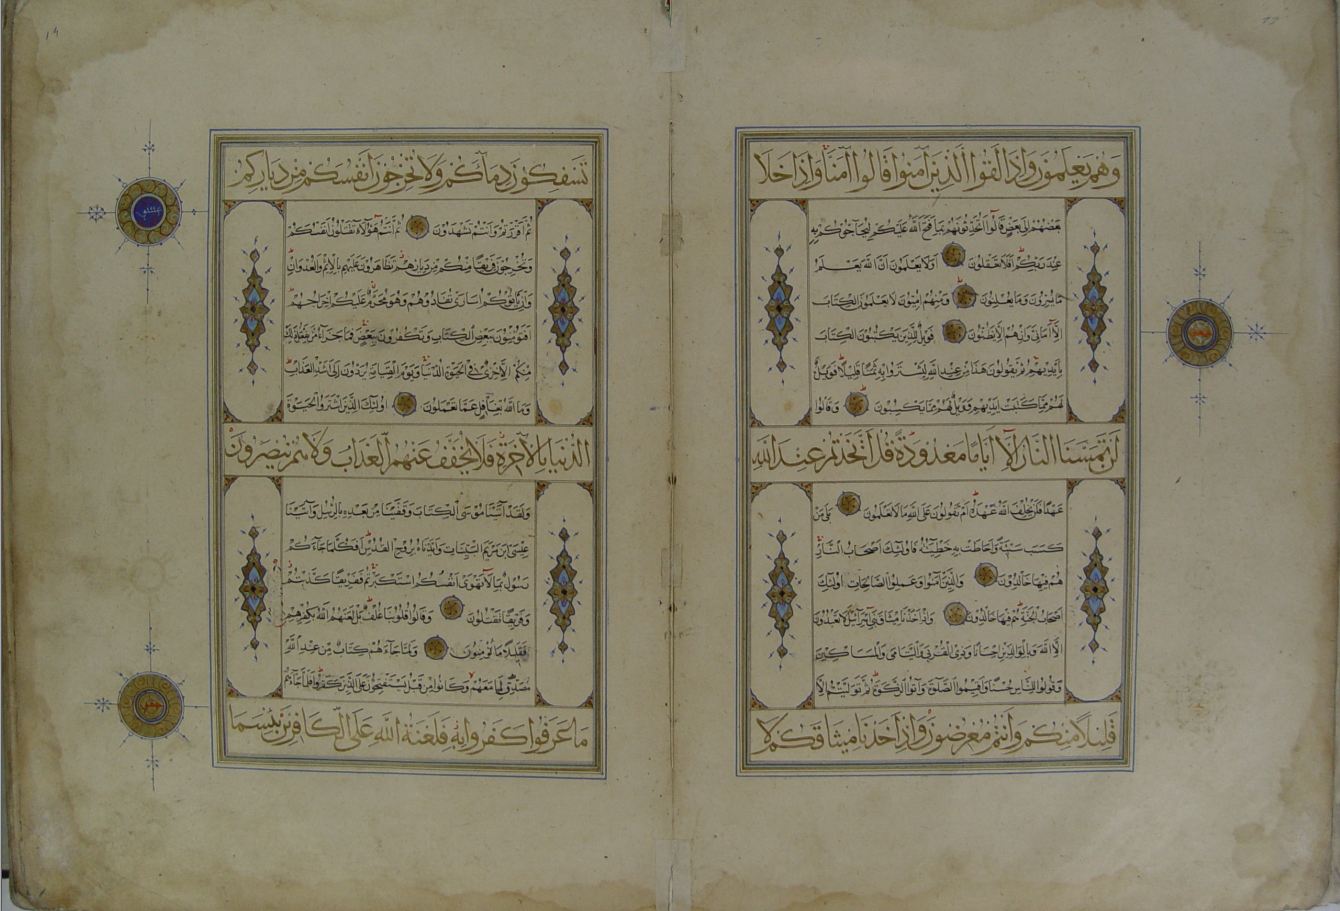 وهم يعلمون واذا لقوا الذين آمنوا قالوا آمنا واذا خلا
بعضهم الى بعض قالوا اتحدثونهم بما فتح الله عليكم ليحاجوكم به
عند ربكم افلا تعقلون اولا يعلمون ان الله يعلم
ما يسرون وما يعلنون ومنهم اميون لا يعلمون الكتاب
الا اماني وان هم الا يظنون فويل للذين يكتبون الكتاب
بايديهم ثم يقولون هذا من عند الله ليشتروا به ثمنا قليلا فويل
لهم مما كتبت ايديهم وويل لهم مما يكسبون وقالوا
لن تمسنا النار الا اياما معدودة قل اتخذتم عند الله
عهدا فلن يخلف الله عهده ام تقولون على الله ما لا تعلمون بلى من
كسب سيئة واحاطت به خطيئته فاولئك اصحاب النار
هم فيها خالدون والذين آمنوا وعملوا الصالحات اولئك
اصحاب الجنة هم فيها خالدون واذ اخذنا ميثاق بني اسرائيل لا تعبدون
الا الله وبالوالدين احسانا وذي القربى واليتامى والمساكين
وقولوا للناس حسنا واقيموا الصلوة وآتوا الزكوة ثم توليتم الا
قليلا منكم وانتم معرضون واذ اخذنا ميثاقكم لا
تسفكون دماءكم ولا تخرجون انفسكم من دياركم
ثم اقررتم وانتم تشهدون ثم انتم هؤلاء تقتلون انفسكم
وتخرجون فريقا منكم من ديارهم تظاهرون عليهم بالاثم والعدوان
وان ياتوكم اسارى تفادوهم وهو محرم عليكم اخراجهم
افتؤمنون ببعض الكتاب وتكفرون ببعض فما جزاء من يفعل ذلك
منكم الا خزي في الحيوة الدنيا ويوم القيامة يردون الى اشد العذاب
وما الله بغافل عما تعملون اولئك الذين اشتروا الحيوة
الدنيا بالآخرة فلا يخفف عنهم العذاب ولا هم ينصرون
ولقد آتينا موسى الكتاب وقفينا من بعده بالرسل وآتينا
عيسى ابن مريم البينات وايدناه بروح القدس افكلما جاءكم
رسول بما لا تهوى انفسكم استكبرتم ففريقا كذبتم
وفريقا تقتلون وقالوا قلوبنا غلف بل لعنهم الله بكفرهم
فقليلا ما يؤمنون ولما جاءهم كتاب من عند الله
مصدق لما معهم وكانوا من قبل يستفتحون على الذين كفروا فلما جاءهم
ما عرفوا كفروا به فلعنة الله على الكافرين بئسما